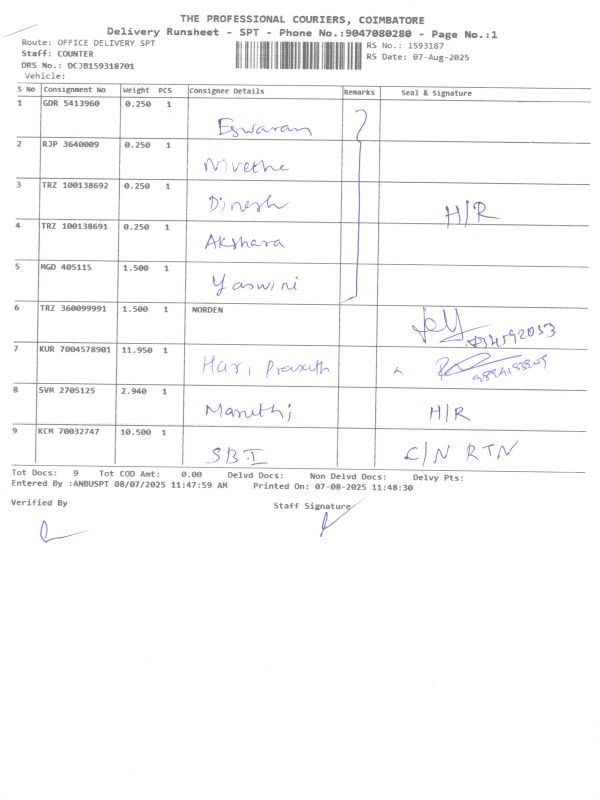 THE PROFESSIONAL COURIERS, COIMBATORE
Delivery Runsheet - SPT - Phone No.:9047080280 - Page No.:1
Route: OFFICE DELIVERY SPT RS No.: 1593187
Staff: COUNTER RS Date: 07-Aug-2025
DRS No.: DCJB159318701
Vehicle:
S No Consignment No Weight PCS Consignee Details Remarks Seal & Signature
1 GDR 5413960 0.250 1 Eswaran
2 RJP 3640009 0.250 1 Nivetha
3 TRZ 100138692 0.250 1 Dinesh H/R
4 TRZ 100138691 0.250 1 Akshara
5 MGD 405115 1.500 1 Yaswini
6 TRZ 360099991 1.500 1 NORDEN
7 KUR 7004578901 11.950 1 Hari Prasath
8 SVM 2705125 2.940 1 Maruthi H/R
9 KCM 70032747 10.500 1 SBI C/N RTN
Tot Docs: 9 Tot COD Amt: 0.00 Delvd Docs: Non Delvd Docs: Delvy Pts:
Entered By :ANBUSPT 08/07/2025 11:47:59 AM Printed On: 07-08-2025 11:48:30
Verified By Staff Signature